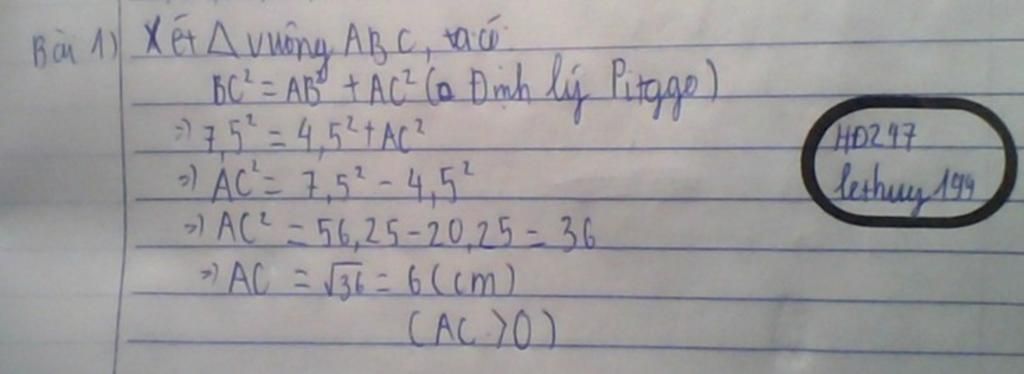 Bài 1) Xét Δ vuông ABC, ta có:
BC² = AB² + AC² ( Định lý Pitago)
=> 7,5² = 4,5² + AC²
=> AC² = 7,5² - 4,5²
=> AC² = 56,25 - 20,25 = 36
=> AC = √36 = 6 (cm)
(AC > 0)
HD247
lethuy 194